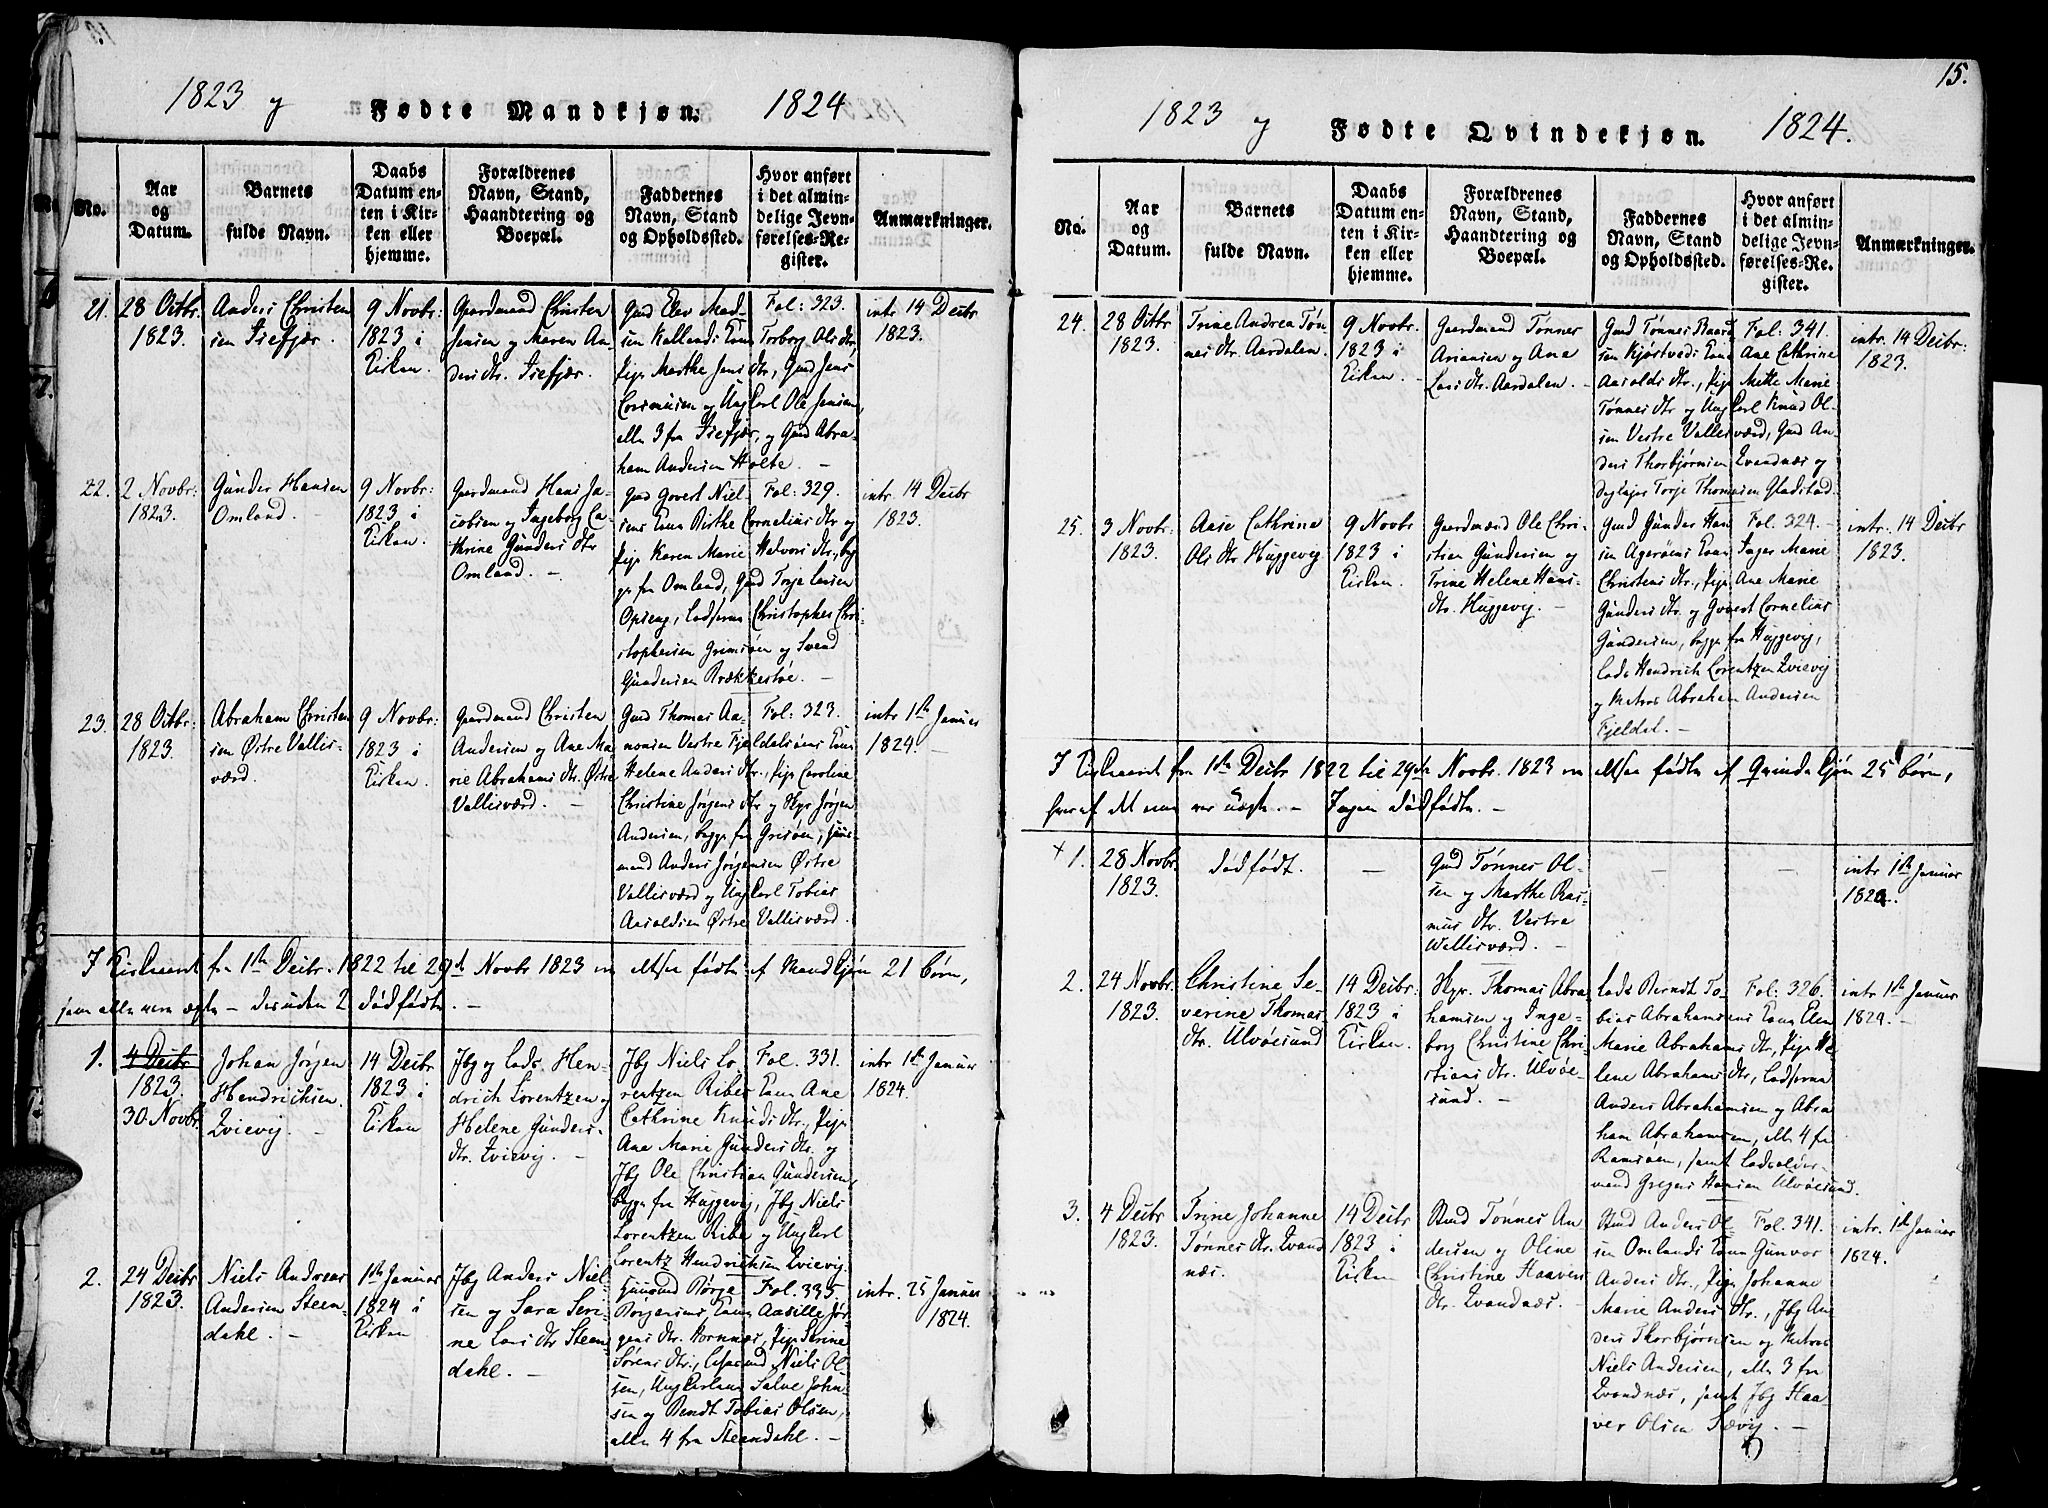 15.
1823 y Fødte Mandkjøn. 1824
No.
Aar
og
Datum.
Barnets
fulde Navn.
Daabs
Datum en-
ten i Kir-
ken eller
hjemme.
Forældrenes
Navn, Stand,
Haandtering og
Boepæl.
Faddernes
Navn, Stand
og Opholdssted.
Hvor anført
i det almin-
delige Jevn-
førelses-Re-
gister.
Anmærkninger.
21. 28 Octbr.
1823.
Anders Christen
sen Isefjær.
9 Novbr:
1823 i
Kirken.
Gaardmand Christen
Jensen og Maren An
ders dtr. Isefjær.
Gmd Elev Mad-
sen Kallands Kone Torborg Ols dtr,
Pige Marthe Jens dtr, Gmd Jens
og Ungkarl Ole Jensen,
alle 3 fra Isefjær, og Gmd Abra-
ham Andersen Holte. –
Fol: 323.
intr 14 Decbr
1823.
22. 2 Novbr:
1823.
Gunder Hansen
Omland. –
9 Novbr:
1823 i
Kirken.
Gaardmand Hans Ja-
cobsen og Ingeborg Ca-
thrine Gunders dtr
Omland. –
Gmd Govert Niel-
sens Kone Birthe Cornelius dtr og
Pige Karen Marie Halvors dtr., beg
ge fra Omland, Gmd Terje Larsen
Opseng, Ladsmd Christopher Chri-
stophersen Grimsøen og Svend
Gundersen Brækkestøe. –
Fol: 329.
intr. 14 Decbr
1823.
23. 28 Octbr:
1823.
Abraham Christen
sen Østre Vallis-
værd.
9 Novbr:
1823 i
Kirken.
Gaardmand Christen
Andersen og Ane Ma
rie Abrahams dtr. Østre
Vallisværd. –
Gmd Thomas Aa-
nonsen Vestre Fjeldalsøens Kone
Helene Anders dtr., Pige Caroline
Christine Jörgens dtr og Skpr Jörgen
Andersen, begge fra Grisøen,
mand Anders Jörgensen Østre
Vallisværd og Ungkarl Tobias
Aasoldsen Østre Vallisværd.
Fol: 323.
intr 1ste Januar
1824. –
I Kirkeaaret fra 1ste Decbr. 1822 til 29de Novbr 1823 er altsaa fødte af Mandkjøn 21 børn,
som alle vare ægte – desuden 2 dødfødte. –
1. 4 Decbr
1823.
30 Novbr.
Johan Jörgen
Hendrichsen
Qvievig. –
14 Decbr
1823 i
Kirken
Jbg og Lods Hen-
drich Lorentzen og
Helene Gunders-
dtr. Qvievig. –
Jbg Niels Lo-
rentzen Ribes Kone Ane
Cathrine Knuds dtr., Pige
Ane Marie Gunders dtr. og
Jbg Ole Christian Gundersen,
begge fra Huggevig, Jbg Niels
Lorentzen Ribe og Ungkarl
Lorentz Hendrichsen Qvievig.
Fol. 331.
intr 1ste Januar
1824.
2. 24 Decbr
1823.
Niels Andreas
Andersen Steen-
dahl. –
1ste Januar
1824 i
Kirken
Jbg Anders Niel-
sen og Sara Seri-
ne Lars dtr Steen
dahl. –
Børge
Börgesens Kone Aasille Jör-
gens dtr. Hornnæs, Pige Serine
Sørens dtr., Niels Ol-
sen, Ungkarlene Salve John-
sen og Bendt Tobias Olsen,
alle 4 fra Steendahl. –
Fol. 335.
intr. 25 Januar
1824.
1823 y Fødte Qvindekjøn. 1824.
No.
Aar
og
Datum.
Barnets
fulde Navn.
Daabs
Datum en-
ten i Kir-
ken eller
hjemme.
Forældrenes
Navn, Stand,
Haandtering og
Boepæl.
Faddernes
Navn, Stand
og Opholdssted.
Hvor anført
i det almin-
delige Jevn-
førelses-Re-
gister.
Anmærkninger.
24. 28 Octbr
1823.
Trine Andrea Tøn
nes dtr. Aardalen.
9 Novbr.
1823 i
Kirken. –
Gaardmand Tønnes
Ariansen og Ane
Lars dtr. Aardalen. –
Gmd Tønnes Baard
sen Kjøstveds Kone Ane Cathrine
Aasolds dtr., Pige Mette Marie
Tønnes dtr og Ungkarl Knud Ol-
sen Vestre Vallisværd, Gmd An-
ders Thorbjørnsen Qvandnæs og
Terje Thomesen Gladstad.
Fol: 341.
intr. 14 Decbr:
1823.
25. 3 Novbr:
1823.
Aase Cathrine
Ols dtr Huggevig
9 Novbr
1823 i
Kirken.
Gaardmand Ole Chri-
stian Gundersen og
Trine Helene Hans-
dtr. Huggevig. –
Gmd Gunder Han
sen Agerøens Kone Inger Marie
Christens dtr., Pige Ane Marie
Gunders dtr. og Govert Cornelius
Gundersen, begge fra Huggevig,
Lods Hendrich Lorentzen Qvievig
og Matros Abraham Andersen
Fjeldet. –
Fol: 324. –
intr. 14 Decbr
1823.
I Kirkeaaret fra 1ste Decbr 1822 til 29de Novbr. 1823 er altsaa fødte af Qvindekjøn 25 børn,
hvoraf et var uægte. – Ingen dødfødte. –
+ 1. 28 Novbr.
1823.
Dødfødt. –
Gmd Tønnes Ol-
sen og Marthe Ras-
mus dtr. Vestre
Wallisværd. –
intr 1ste Januar
1824.
2. 24 Novbr.
1823.
Christine Se-
verine Thomas
dtr. Ulvøesund
14 Decbr:
1823 i
Kirken.
Skpr. Thomas Abra
hamsen og Inge-
borg Christine Chri-
stians dtr. Ulvøe-
sund. –
Lods Berndt To-
bias Abrahamsens Kone Elen
Marie Abrahams dtr., Pige He-
lene Abrahams dtr, Ladsmd
Anders Abrahamsen og Abra
ham Abrahamsen, alle 4 fra
Ramsøen, samt Lodsolder-
mand Gregers Hansen Ulvøesund.
Fol: 326.
intr 1ste Januar
1824. –
3. 4 Decbr
1823.
Trine Johanne
Tønnes dtr. Qvand
næs.
14 Decbr
1823 i
Kirken
Gmd Tønnes An
dersen og Oline
Christine Haavers
dtr. Qvandnæs. –
Gmd Anders Ol-
sen Omlands Kone Gunvor
Anders dtr., Pige Johanne
Marie Anders dtr., Jbg An
ders Thorbjørnsen og Matros
Niels Andersen, alle 3 fra
Qvandnæs, samt Jbg Haa-
ver Olsen Sævig. –
Fol. 341.
intr. 1ste Januar
1824.